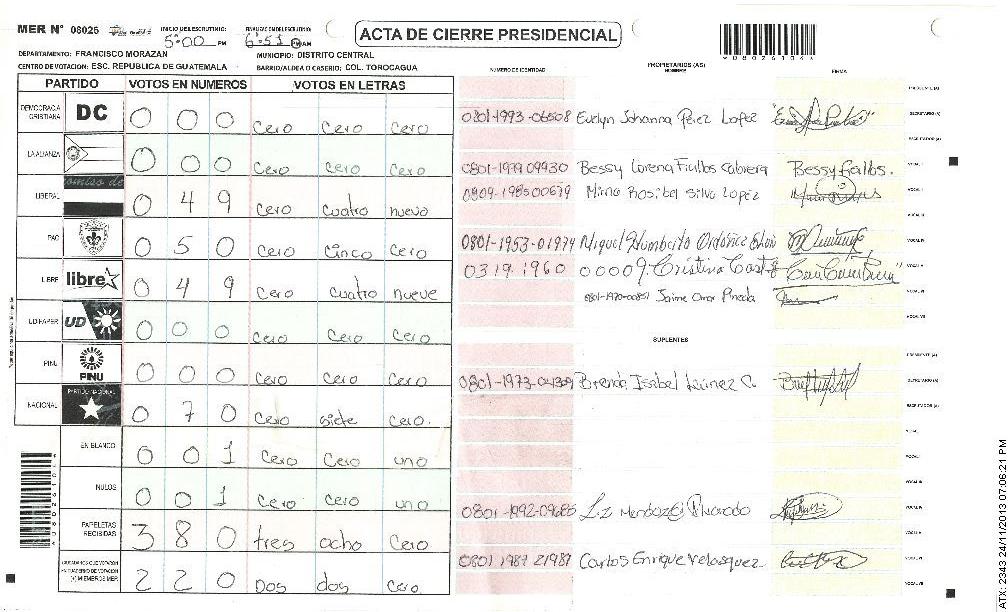 MER N° 08026 INICIO DEL ESCRUTINIO: 5:00 PM FINALIZACION DEL ESCRUTINIO: 6:51 PM AM
ACTA DE CIERRE PRESIDENCIAL
DEPARTAMENTO: FRANCISCO MORAZAN MUNICIPIO: DISTRITO CENTRAL
CENTRO DE VOTACION: ESC. REPUBLICA DE GUATEMALA BARRIO/ALDEA O CASERIO: COL. TOROCAGUA
PARTIDO VOTOS EN NUMEROS VOTOS EN LETRAS
DEMOCRACIA CRISTIANA DC 0 0 0 cero cero cero
LA ALIANZA 0 0 0 cero cero cero
LIBERAL 0 4 9 cero cuatro nueve
PAC 0 5 0 cero cinco cero
LIBRE libre 0 4 9 cero cuatro nueve
UD/FAPER UD 0 0 0 cero cero cero
PINU PINU 0 0 0 cero cero cero
NACIONAL PARTIDO NACIONAL 0 7 0 cero siete cero.
EN BLANCO 0 0 1 cero cero uno
NULOS 0 0 1 cero cero uno
PAPELETAS RECIBIDAS 3 8 0 tres ocho cero
CIUDADANOS QUE VOTARON (+) MIEMBROS MER 2 2 0 Dos dos cero
NUMERO DE IDENTIDAD PROPIETARIOS (AS) NOMBRE FIRMA
PRESIDENTE (A)
0801-1993-06508 Evelyn Johanna Pérez Lopez SECRETARIO (A)
ESCRUTADOR (A)
0801-1979 09930 Bessy Lorena Fiallos Cabrera Bessy Fiallos. VOCAL I
0809-198500679 Mirna Rosibel Silva Lopez VOCAL II
VOCAL III
0801-1953-01974 Miguel Humberto Ordóñez VOCAL IV
0319 1960 00009 Cristina VOCAL V
0801-1970-00851 Jaime Omar Pineda VOCAL VI
VOCAL VII
SUPLENTES
PRESIDENTE (A)
0801-1973-04309 Brenda Isabel Lainez C. SECRETARIO (A)
ESCRUTADOR (A)
VOCAL I
VOCAL II
VOCAL III
0801-1992-09685 Liz Mendoza Alvarado VOCAL IV
VOCAL V
0801 1987 21987 Carlos Enrique Velasquez VOCAL VI
VOCAL VII
ATX: 2343 24/11/2013 07:06:21 PM